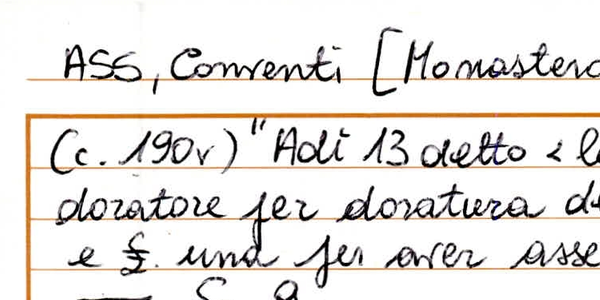 ASS, Conventi [Monastero
(c. 190v) "Adì 13 detto £
doratore per doratura d
e £. una per aver asse